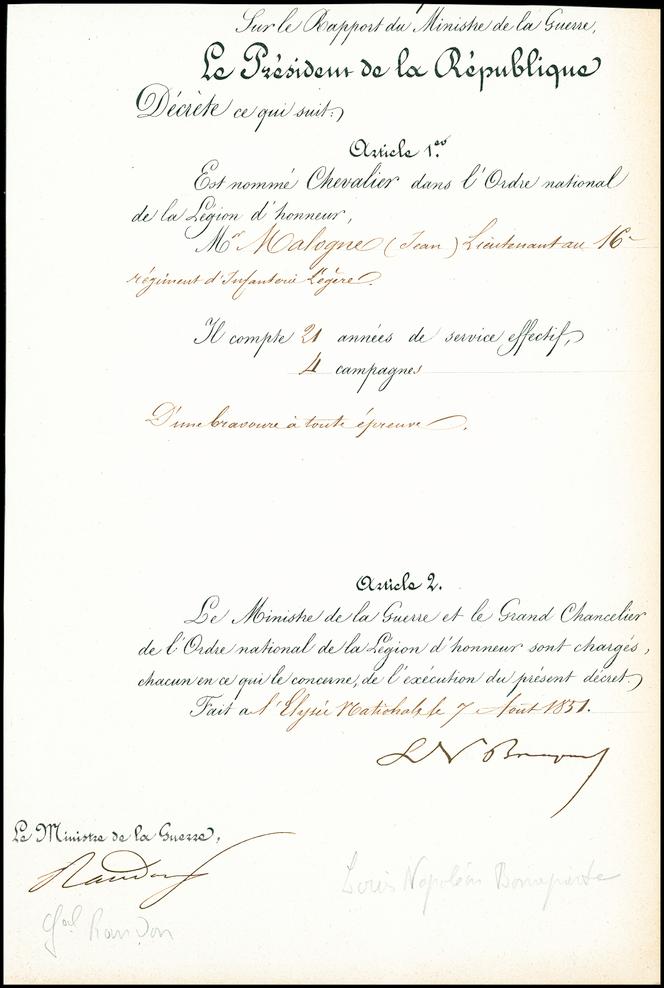 Sur le Rapport du Ministre de la Guerre,
Le Président de la République
Décrète ce qui suit:
Article 1.er
Est nommé Chevalier dans l'Ordre national
de la Légion d'honneur,
Mr Malogne (Jean) Lieutenant au 16e
régiment d'Infanterie Légère.
Il compte 21 années de service effectif,
4 campagnes
D'une bravoure à toute épreuve.
Article 2.
Le Ministre de la Guerre et le Grand Chancelier
de l'Ordre national de la Légion d'honneur sont chargés,
chacun en ce qui le concerne, de l'exécution du présent décret.
Fait a l'Elysée National, le 7 Aout 1851.
L N Bonaparte
Le Ministre de la Guerre,
Randon
Louis Napoléon Bonaparte
Gal Randon